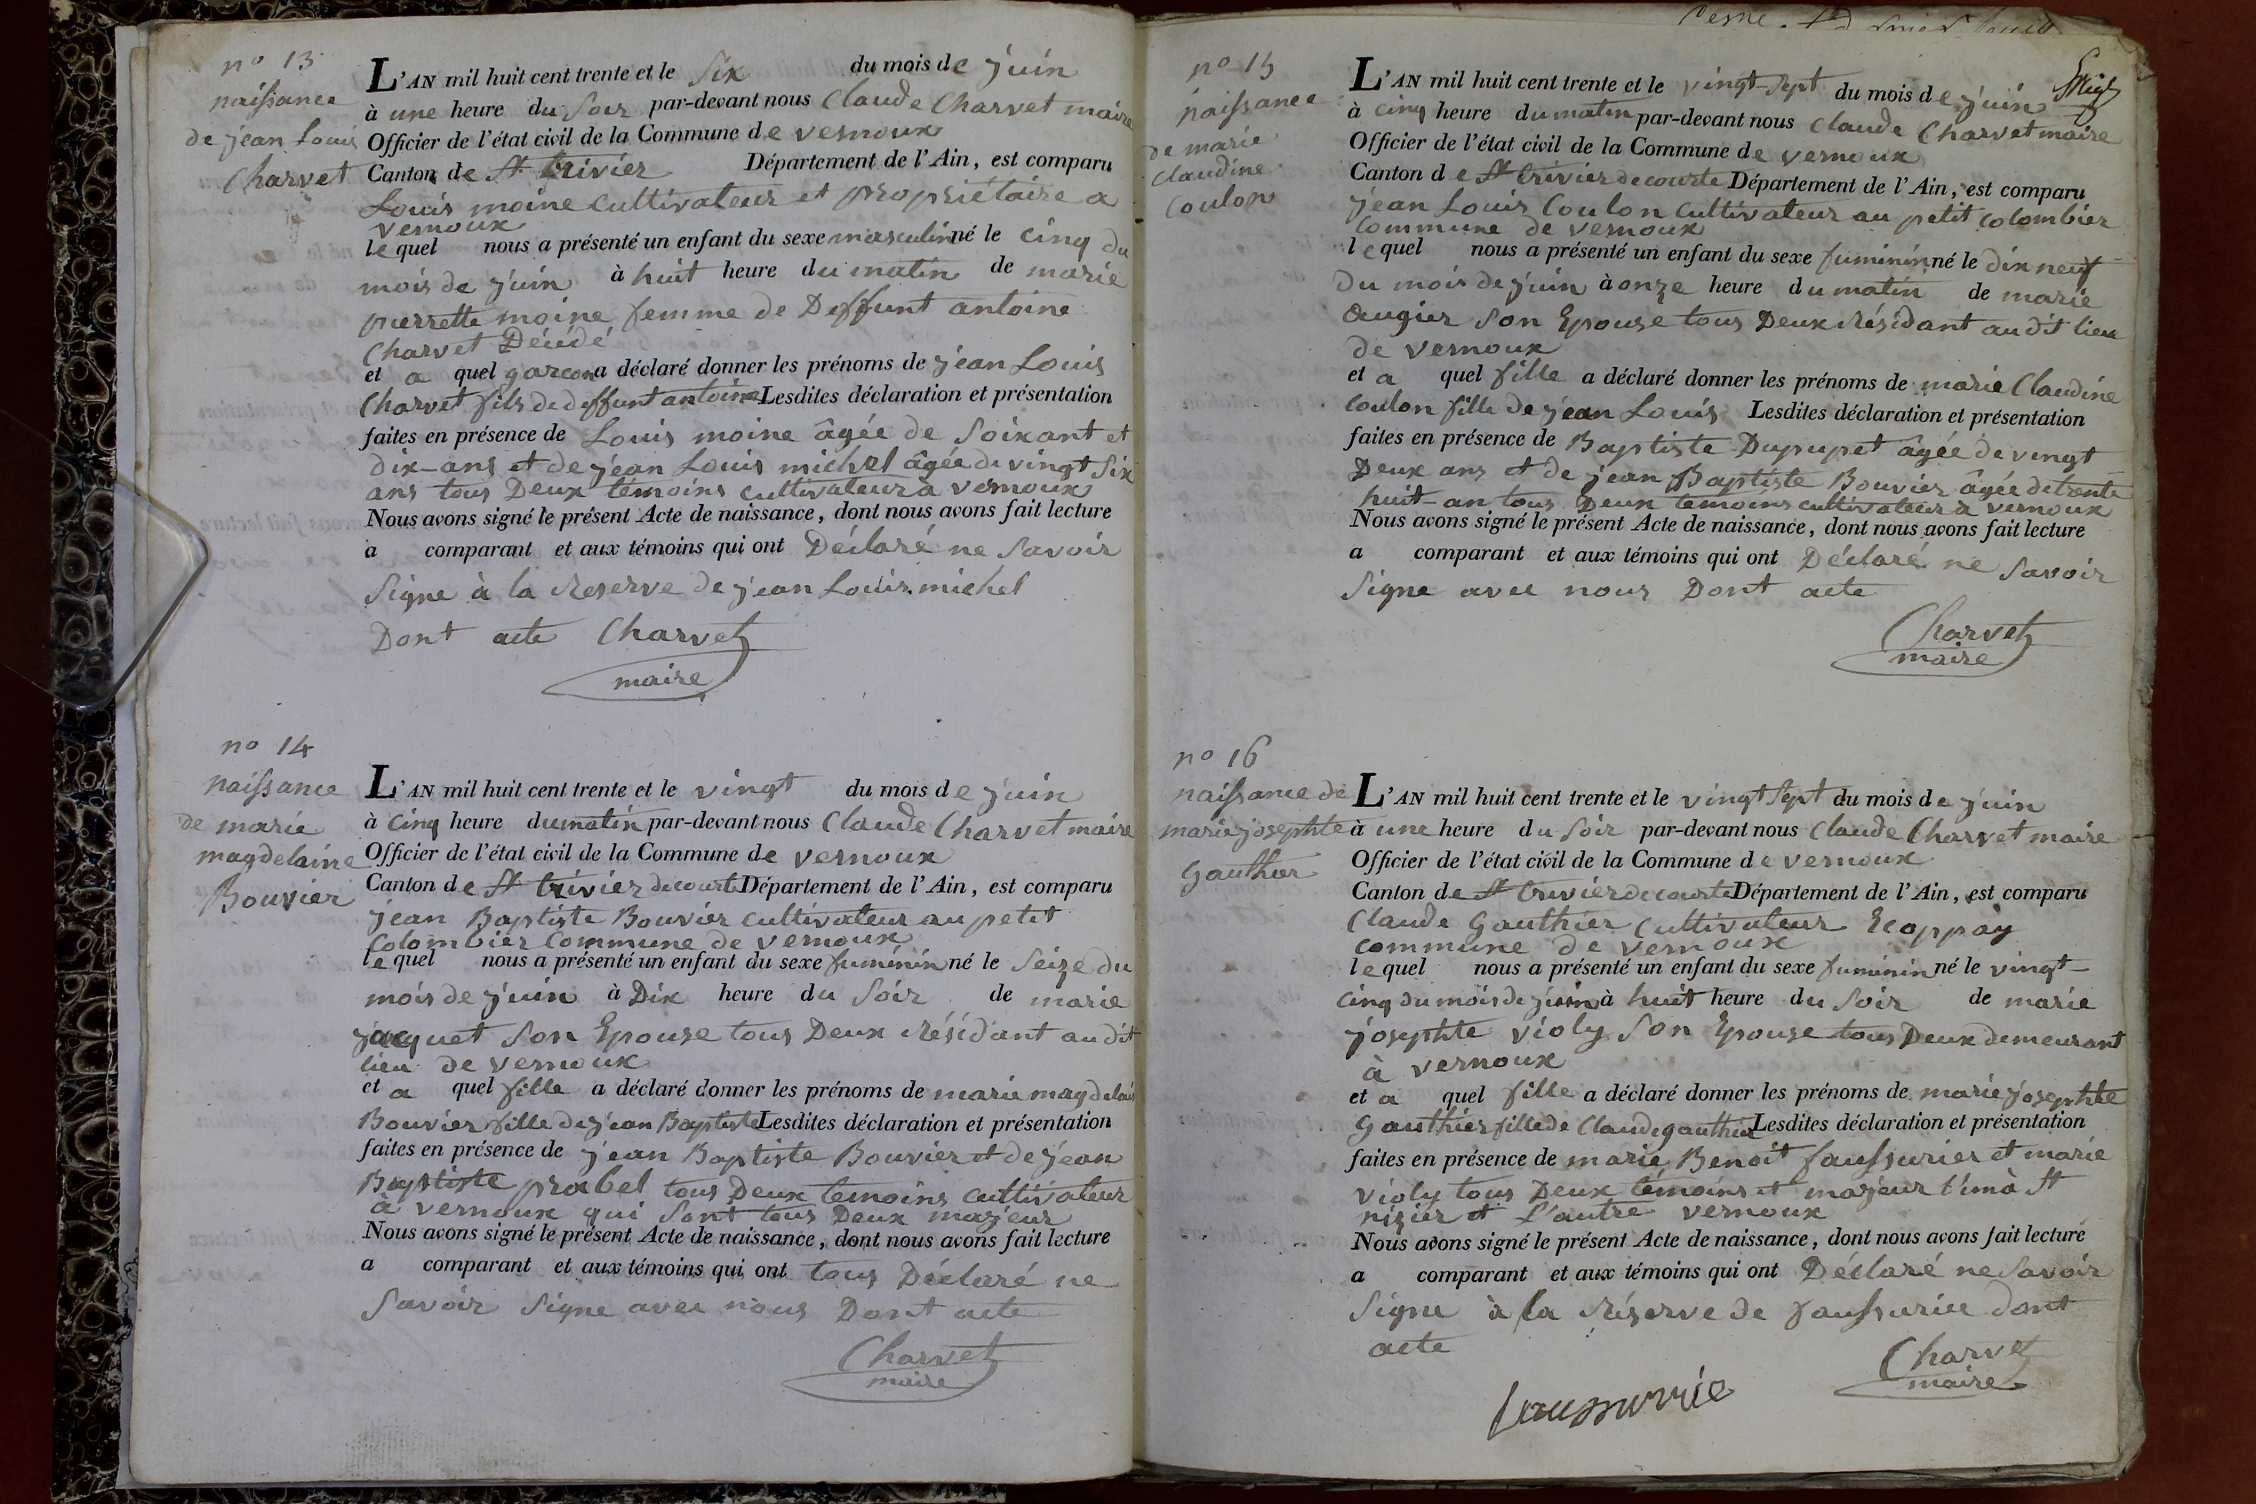 nº 13
naissance
de jean Louis
Charvet
L'AN mil huit cent trente et le Six du mois de juin
à une heure du Soir par-devant nous Claude Charvet maire
Officier de l'état civil de la Commune de vernoux
Canton de St trivier Département de l'Ain, est comparu
Louis moine Cultivateur et propriétaire a
vernoux
lequel nous a présenté un enfant du sexe masculin né le cinq du
mois de juin à huit heure du matin de marie
pierrette moine femme de Deffunt antoine
Charvet Décédé
et a quel garcon a déclaré donner les prénoms de jean Louis
Charvet fils de deffunt antoine Lesdites déclaration et présentation
faites en présence de Louis moine âgée de Soixant et
dix-ans et de jean Louis michel âgée de vingt Six
ans tous Deux témoins cultivateur a vernoux
Nous avons signé le présent Acte de naissance, dont nous avons fait lecture
a comparant et aux témoins qui ont Déclaré ne Savoir
Signe à la Reserve de jean Louis michel
Dont acte Charvet
maire
nº 14
naissance
de marie
magdelaine
Bouvier
L'AN mil huit cent trente et le vingt du mois de juin
à Cinq heure du matin par-devant nous Claude Charvet maire
Officier de l'état civil de la Commune de vernoux
Canton de St trivier de courte Département de l'Ain, est comparu
jean Baptiste Bouvier cultivateur au petit
Colombier Commune de vernoux
lequel nous a présenté un enfant du sexe fuminin né le Seize du
mois de juin à Dix heure du Soir de marie
jacquet Son Epouse tous Deux Résidant au dit
lieu de vernoux
et a quel fille a déclaré donner les prénoms de marie magdelain
Bouvier fille de jean Baptiste Lesdites déclaration et présentation
faites en présence de jean Baptiste Bouvier et de jean
Baptiste prabel tous Deux temoins cultivateur
à vernoux qui Sont tous Deux majeur
Nous avons signé le présent Acte de naissance, dont nous avons fait lecture
a comparant et aux témoins qui ont tous Déclaré ne
Savoir Signe avec nous Dont acte
Charvet
maire
nº 15
naissance
de marie
Claudine
Coulon
L'AN mil huit cent trente et le vingt-Sept du mois de juin
à cinq heure du matin par-devant nous Claude Charvet maire
Officier de l'état civil de la Commune de vernoux
Canton de St trivier de courte Département de l'Ain, est comparu
jean Louis Coulon Cultivateur au petit colombier
Commune de vernoux
lequel nous a présenté un enfant du sexe fuminin né le dix neuf
Du mois de juin à onze heure du matin de marie
Augier Son Epouse tous Deux Résidant au dit lieu
de vernoux
et a quel fille a déclaré donner les prénoms de marie Claudine
Coulon fille de jean Louis Lesdites déclaration et présentation
faites en présence de Baptiste Dupupet âgée de vingt
Deux ans et de jean Baptiste Bouvier âgée de trente
huit-an tous Deux temoins cultivateur a vernoux
Nous avons signé le présent Acte de naissance, dont nous avons fait lecture
a comparant et aux témoins qui ont Déclaré ne Savoir
Signe avec nous Dont acte
Charvet
maire
nº 16
naissance de
marie josephte
Gauthier
L'AN mil huit cent trente et le vingt Sept du mois de juin
à une heure du Soir par-devant nous Claude Charvet maire
Officier de l'état civil de la Commune de vernoux
Canton de St trivier de courte Département de l'Ain, est comparu
Claude Gauthier Cultivateur Ecoppay
commune de vernoux
lequel nous a présenté un enfant du sexe fuminin né le vingt-
cinq du mois de juin à huit heure du Soir de marie
josephte violy Son Epouse tous Deux demeurant
à vernoux
et a quel fille a déclaré donner les prénoms de marie josephte
Gauthier fille de Claude gauthier Lesdites déclaration et présentation
faites en présence de marie Benoit faussurier et marie
violy tous Deux témoins et majeur l'un à St
nizier et L'autre vernoux
Nous avons signé le présent Acte de naissance, dont nous avons fait lecture
a comparant et aux témoins qui ont Déclaré ne Savoir
Signe à la Réserve de faussurier dont
acte
Charvet
maire